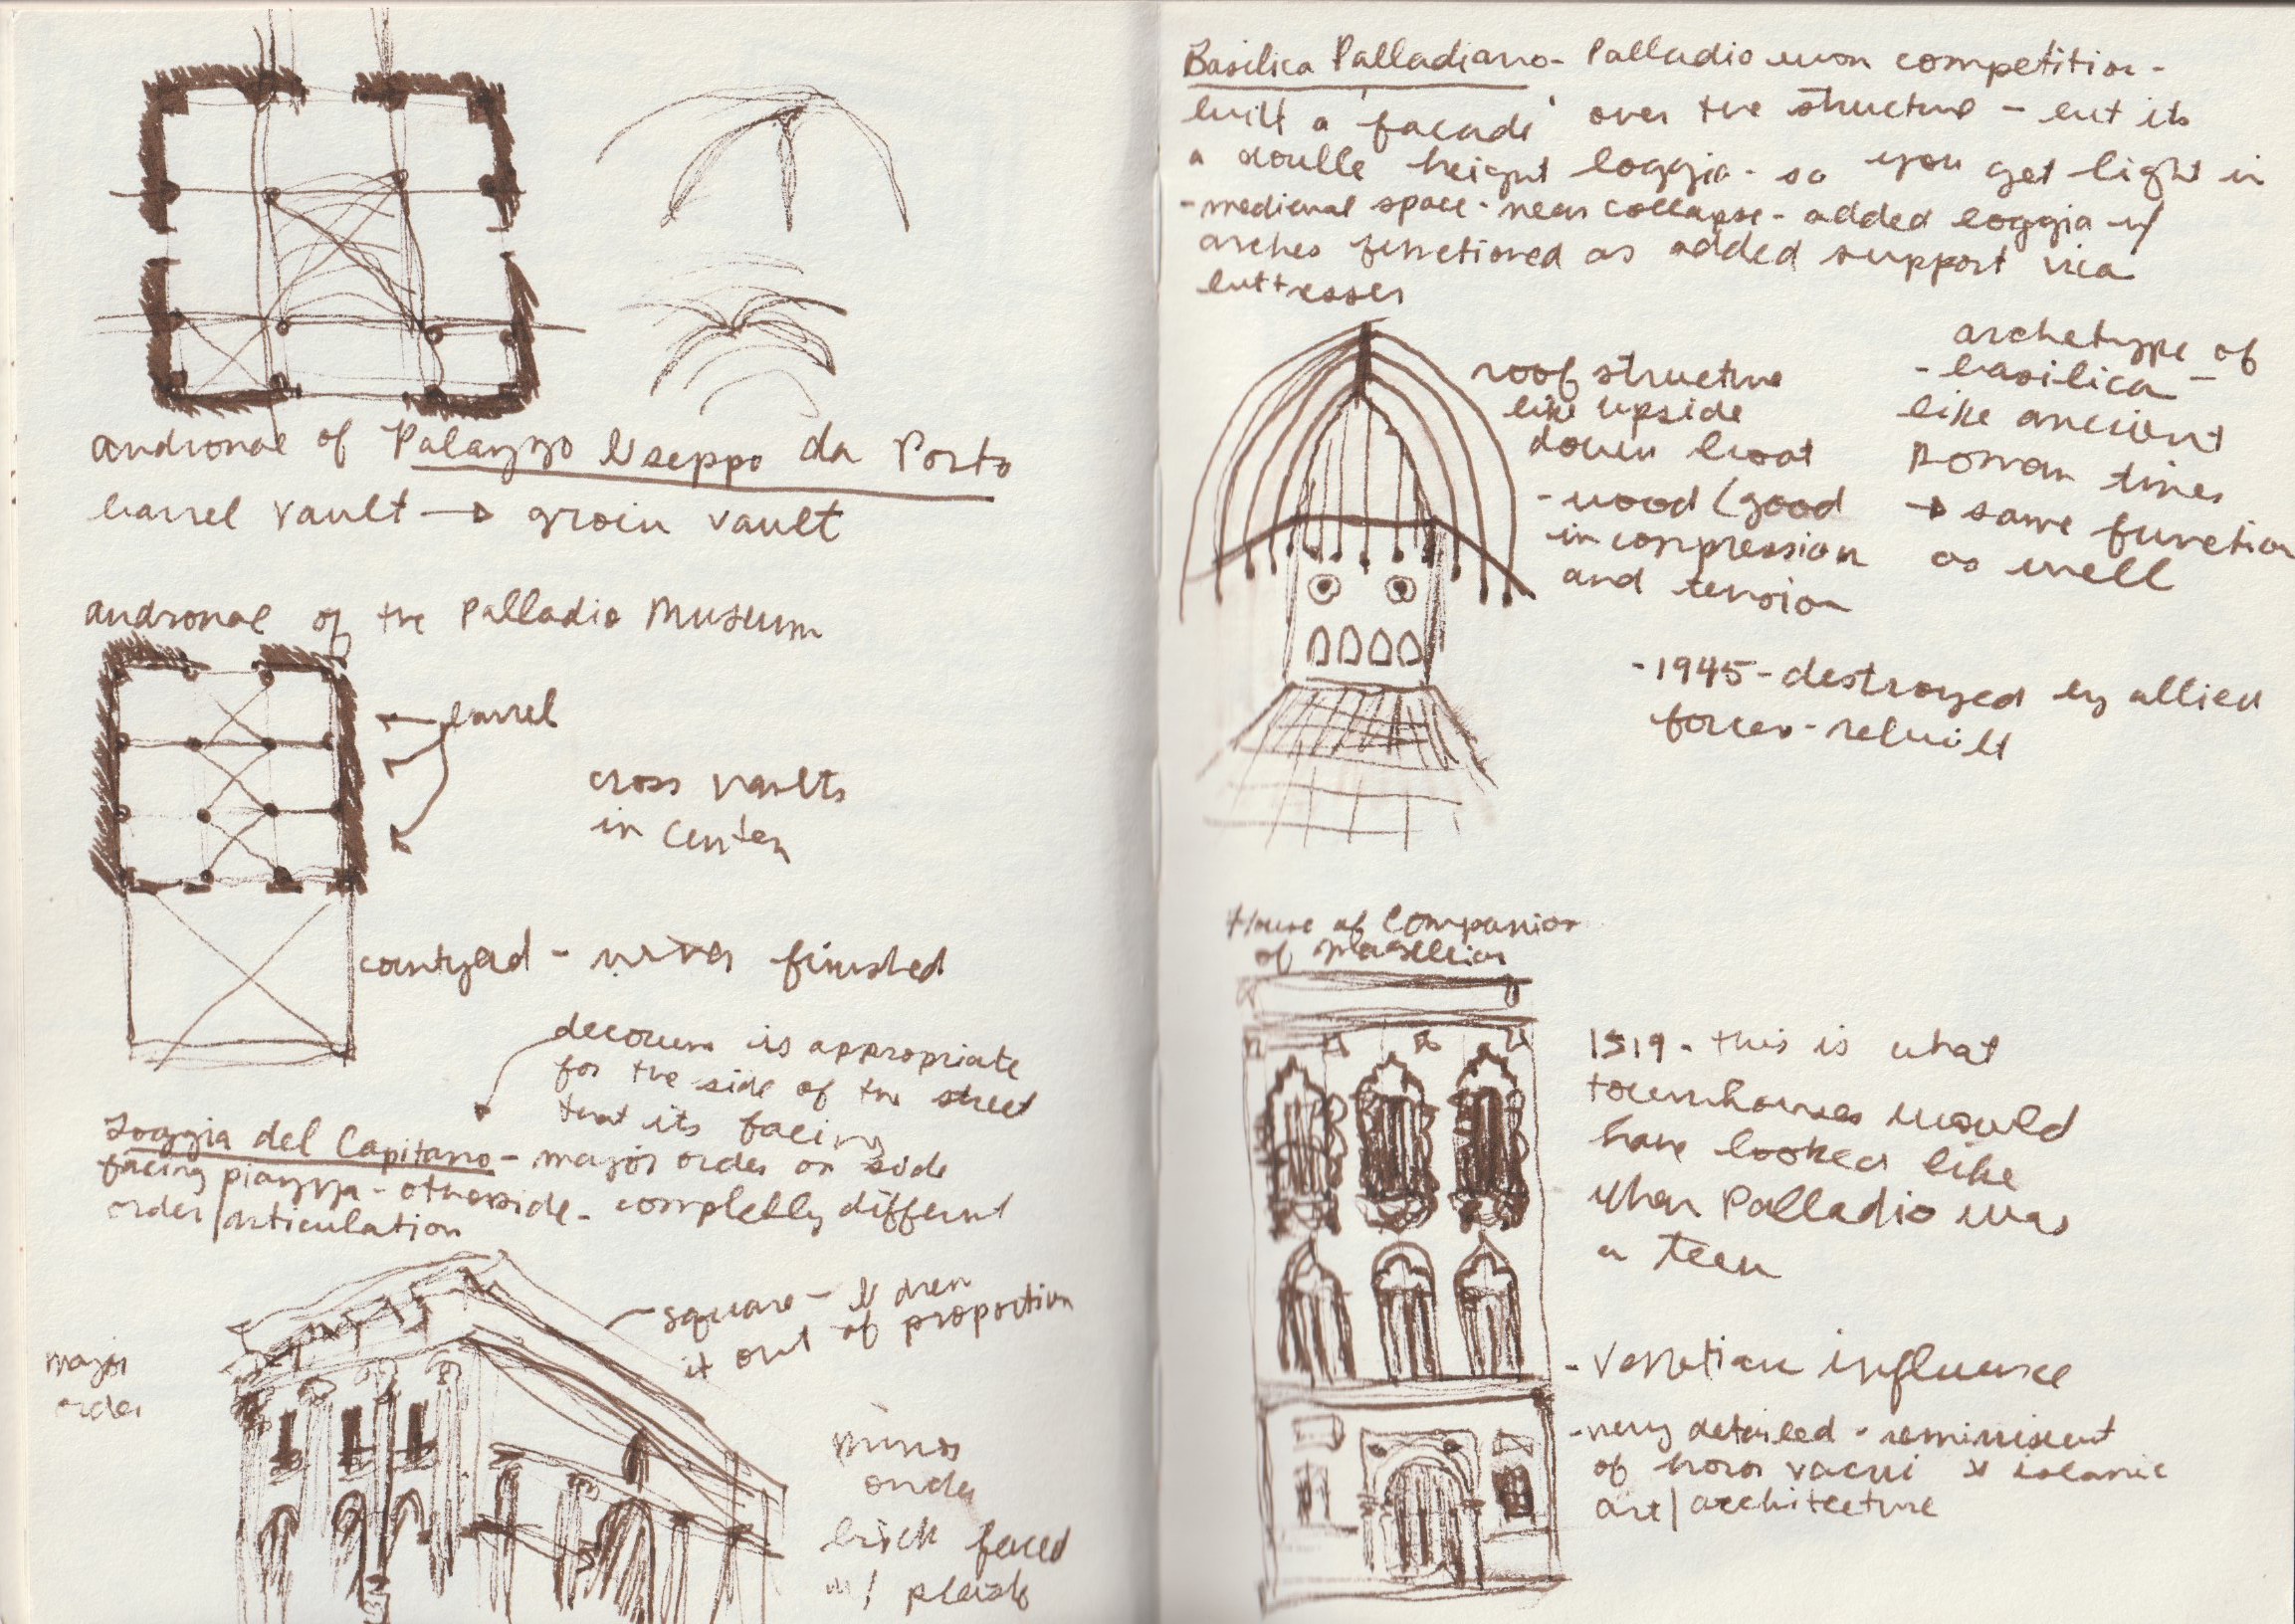 andronae of Palazzo Iseppo da Porto
barrel vault → groin vault
andronae of the Palladio Museum
barrel
cross vaults
in center
courtyard - never finished
decorum is appropriate
for the side of the street
that its facing
Loggia del Capitano - major order on side
facing piazza - otherside - completly different
order/articulation
square - drew
it out of proportion
major
order
minor
order
brick faced
w/
Basilica Palladiano - Palladio won competition -
built a 'facade' over the structure - but its
a double height loggia - so you get light in
- medieval space - near collapse - added loggia w/
arches functioned as added support via
buttresses
roof structure
like upside
down boat
- wood (good
in compression
and tension
archetype of
- basilica -
like ancient
Roman times
→ same function
as well
- 1945 - destroyed by allied
forces - rebuilt
House of Companion
of
1519 - this is what
townhouses would
have looked like
when Palladio was
a teen
- Venetian influence
- very detailed - reminiscent
of horor vacui islamic
art/architecture